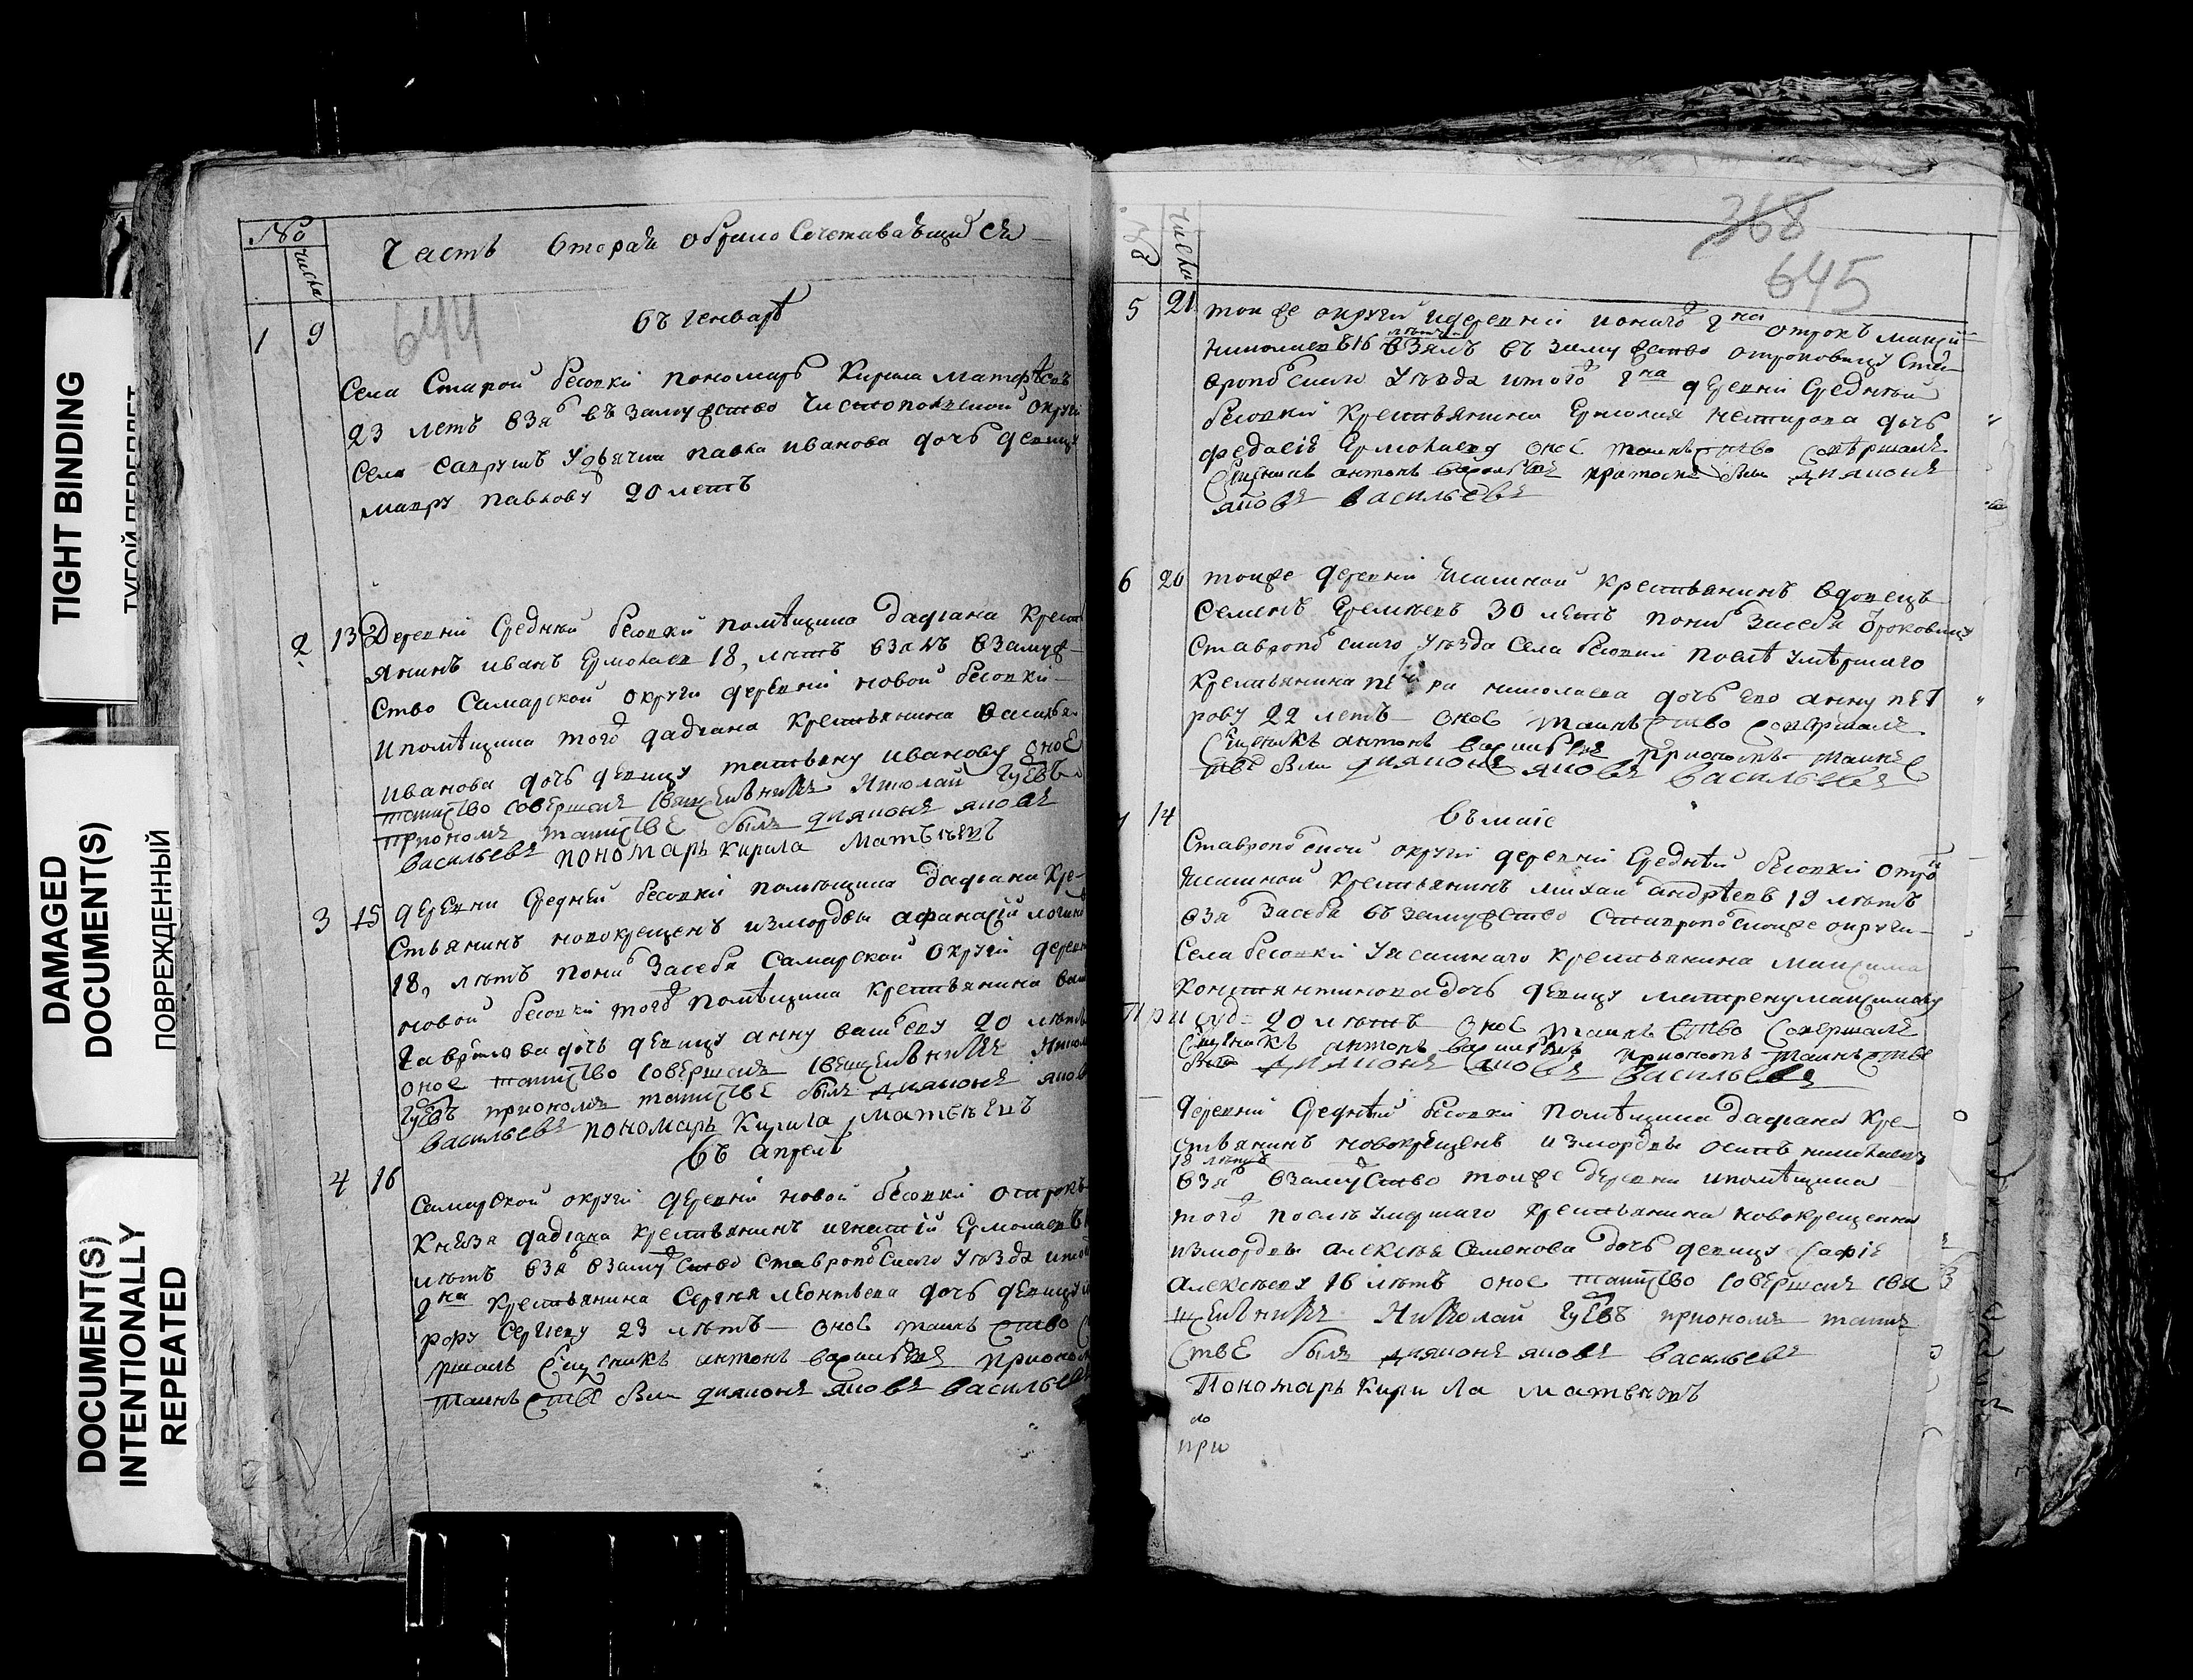 TIGHT BINDING
ТУГОЙ ПЕРЕПЛЕТ
DAMAGED
DOCUMENT(S)
ПОВРЕЖДЕННЫЙ
DOCUMENT(S)
INTENTIONALLY
REPEATED
№ числа
Часть вторая о бракосочетавъшихся
644
въ генварѣ
1 9
Села Старой бесовки пономарь Кирила Матвѣевъ
23 летъ взя въ замужство Чистопольской округи
Села Павла иванова дочь девицу
мавру павлову 20 летъ
2 13 Деревни Средней бесовки помѣщика дадиана Крест
янинъ иванъ Ермолаев 18, лѣтъ взялъ взамуж
ство Самарской округи деревни новой бесовки
ипомѣщика того дадиана крестьянина василья
иванова дочь девицу татьяну иванову оное
таинство совершалъ священникъ Николай Гуевъ
приономъ таинстве былъ диаконъ яковъ
васильевъ пономарь кирила Матвѣевъ
3 15 деревни Средней бесовки помѣщика дадиана кре
стьянинъ новокрещенъ измордвы афанасий логинов
18, лѣтъ поня засебя Самарской округи деревн
новой бесовки того помѣщика крестьянина вас
гаврилова дочь девицу анну васильеву 20 лѣтъ
оное таинство совершалъ священникъ Никол
Гуевъ приономъ таинстве былъ диаконъ яков
васильевъ пономарь Кирила Матвѣевъ
въ апрелѣ
4 16
Самарской округи деревни новой бесовки отрокъ
Князя дадиана крестьянинъ игнатий Ермолаевъ
лѣтъ взя взамуство ставропольскаго уѣзда итог
гна крестьянина Сергея леонтьева дочь девицу
рору Сергиеву 23 лѣтъ оное таинство
ршалъ Священикъ антонъ васильевъ приономъ
таинстве был диаконъ яковъ васильевъ
368
645
№ числа
5 21 тои же округи идеревни ионаго гна отрокъ макси
николаевъ 16 летъ взялъ въ замужство отроковицу Ста
вропольскаго уѣзда итого гна деревни Средней
бесовки крестьянина Ермолая дочь
федасiѣ Ермолаеву оное таинство совершалъ
Священикъ антонъ васильевъ притоем был диаконъ
яковъ васильевъ
6 26 тоиже деревни ясашной крестьянинъ вдовецъ
Семенъ Еремѣевъ 30 лѣтъ поня засебя отроковицу
Ставропольскаго уѣзда Села бесовки послѣ умѣршаго
крестьянина петра николаева дочь ево анну пет
рову 22 летъ оное таинство совершалъ
Священикъ антонъ васильевъ приономъ таинс
тве был диаконъ яковъ васильевъ
въ маiе
14
Ставропольской округи деревни Средней бесовки отро
ясашной крестьянинъ михаи андрѣевъ 19 лѣтъ
взя засебя въ замужство Ставропольскойже округи
Села бесовки ясашнаго крестьянина максима
константинова дочь девицу матрену максимову
20 лѣтъ оное таинство совершалъ
Священикъ антонъ васильевъ приономъ таинстве
был диаконъ яковъ васильевъ
деревни Средней бесовки помѣщика дадиана кре
стьянинъ новокрещенъ измордвы осипъ николаевъ
18 лѣтъ
взя взамуство тоиже деревни ипомѣщика
того послѣ умершаго крестьянина новокрещенна
измордвы алексѣя Семенова дочь девицу Сафiе
алексѣеву 16 лѣтъ оное таинство совершалъ свя
щенникъ Николай Гуевъ приономъ таин
стве былъ диаконъ яковъ васильевъ
Пономарь Кирила матвѣевъ
ло
при